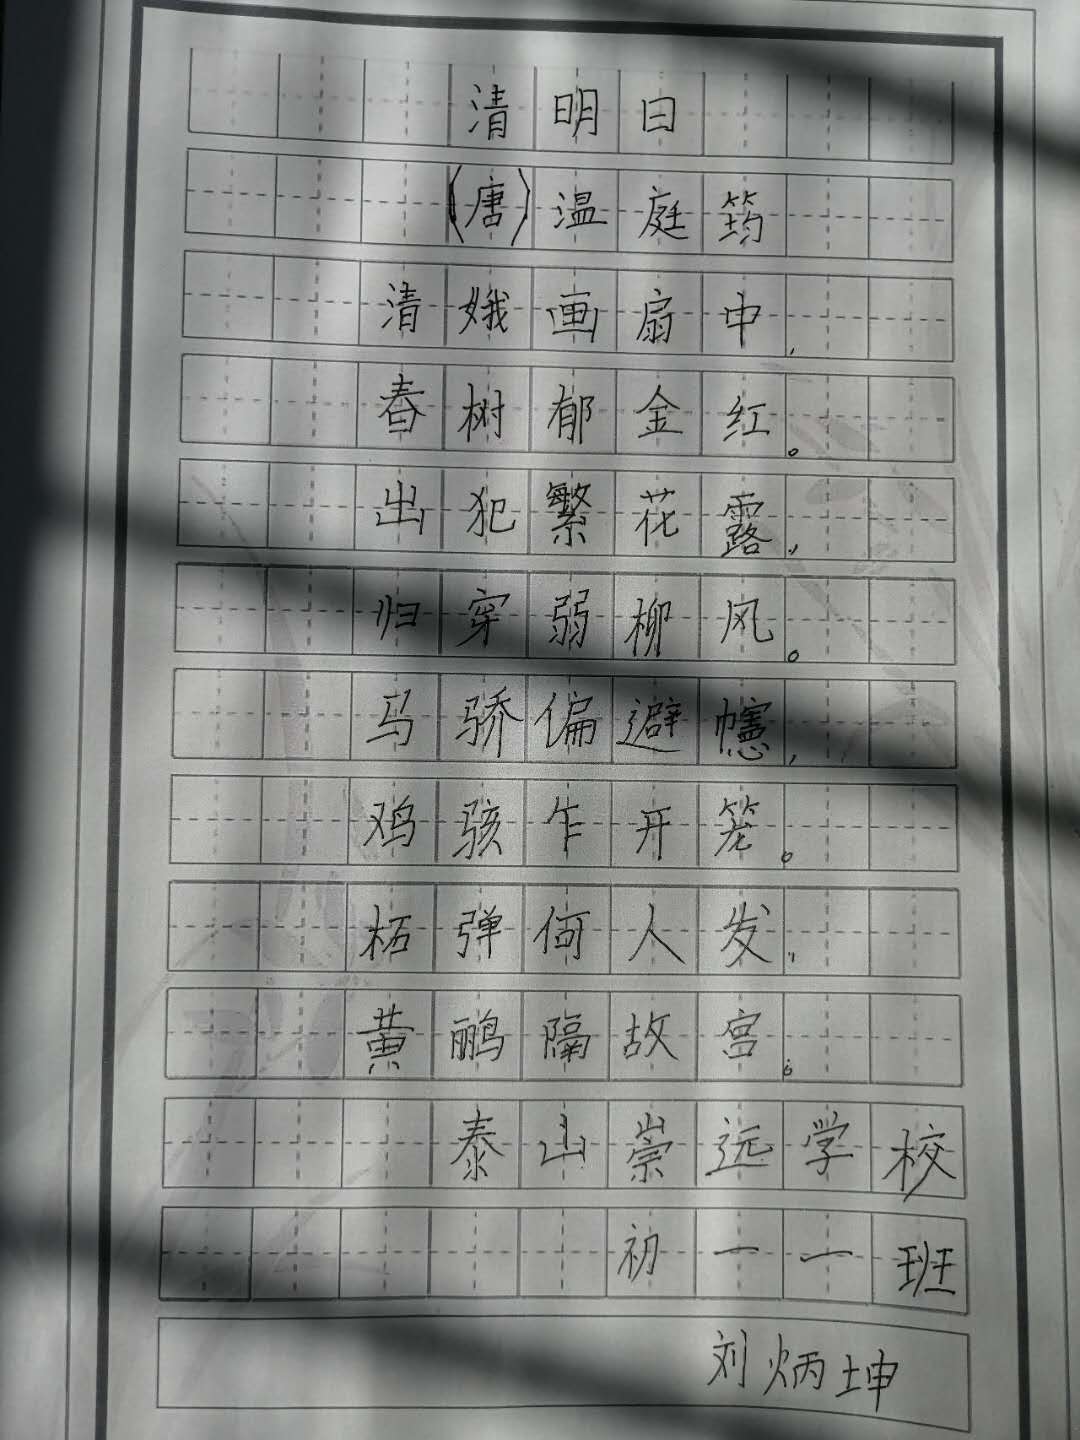 清明日
(唐)温庭筠
清娥画扇中,
春树郁金红。
出犯繁花露,
归穿弱柳风。
马骄偏避幰,
鸡骇乍开笼。
柘弹何人发,
黄鹂隔故宫。
泰山崇远学校
初一一班
刘炳坤